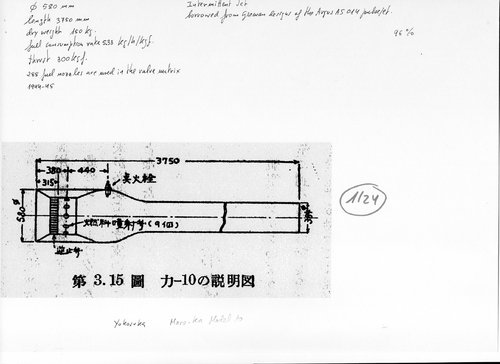 Ø 580 mm
length 3750 mm
dry weight 150 kg.
fuel consumption rate 5.33 kg/h/kgf.
thrust 300 kgf.
288 fuel nozzles are used in the valve matrix
1944-45
Intermittent Jet
borrowed from German designs of the Argus AS 014 pulsejet.
96 %
3750
380
440
315
点火栓
580 Ø
燃料噴射弁(9個)
逆止弁
1/24
第 3.15 圖 カ-10の説明図
Yokosuka
Model 10